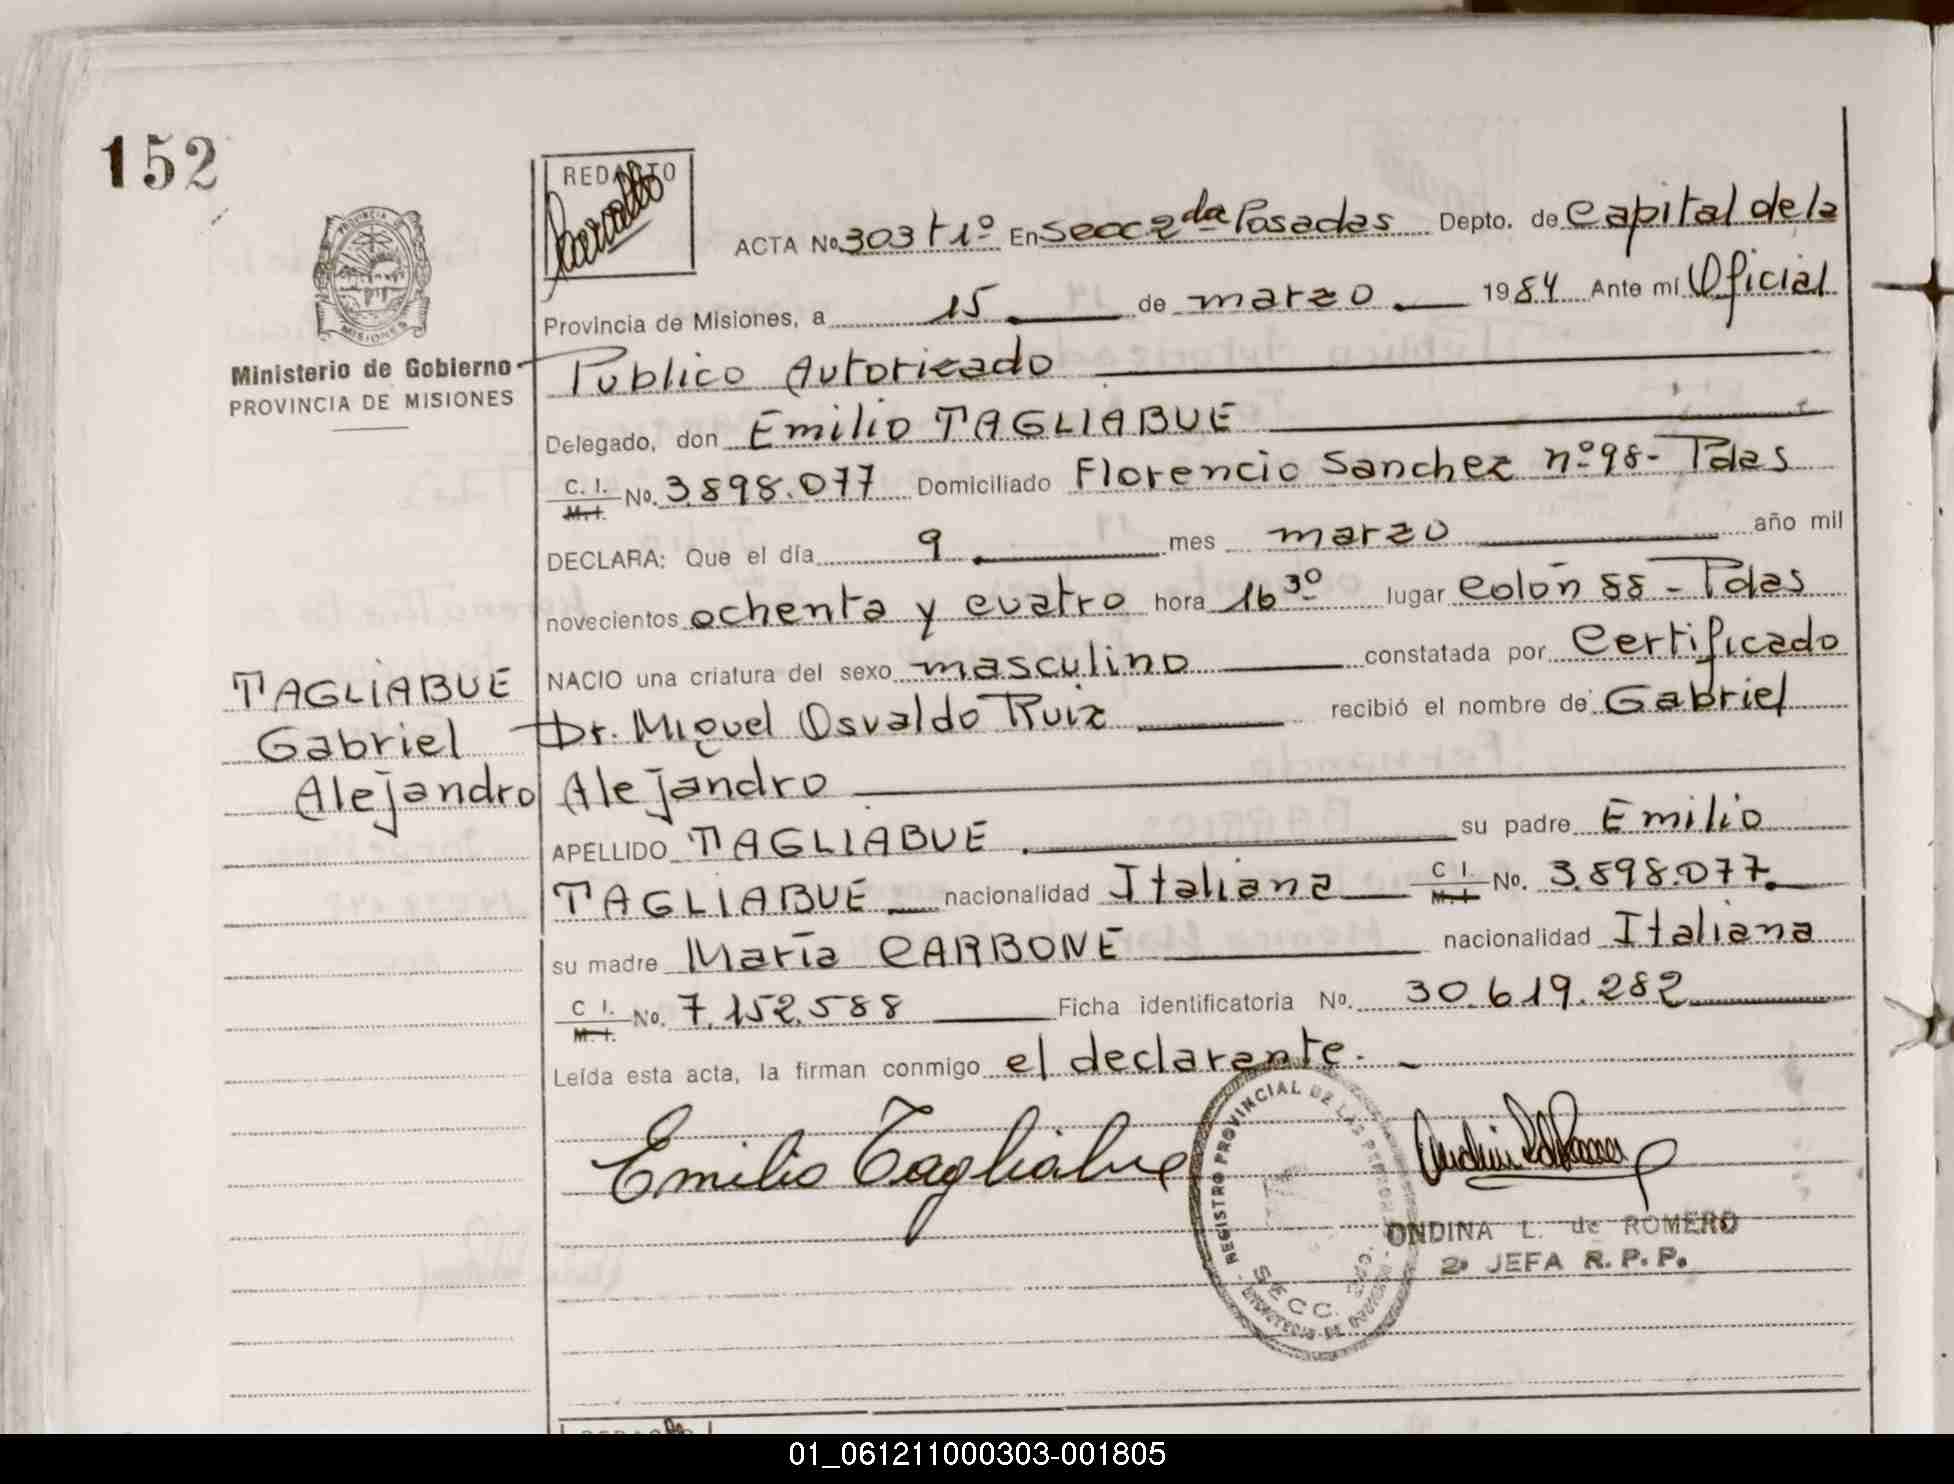 152
REDACTO
ACTA No. 303 t 1º En Secc 2da Posadas Depto. de Capital de la
Provincia de Misiones, a 15 de marzo 1984 Ante mí Oficial
Ministerio de Gobierno
PROVINCIA DE MISIONES
Publico Autorizado
Delegado, don Emilio TAGLIABUE
C. I. M. I. No. 3.898.077 Domiciliado Florencio Sanchez nº 98 - Pdas
DECLARA: Que el día 9 mes marzo año mil
novecientos ochenta y cuatro hora 16 30 lugar Colón 88 - Pdas
NACIO una criatura del sexo masculino constatada por Certificado
Dr. Miguel Osvaldo Ruiz recibió el nombre de Gabriel
Alejandro
TAGLIABUE
Gabriel
Alejandro
APELLIDO TAGLIABUE su padre Emilio
TAGLIABUE nacionalidad Italiana C I. M. I. No. 3.898.077.
su madre María CARBONE nacionalidad Italiana
C I. M. I. No. 7.152.588 Ficha identificatoria No. 30.619.282
Leída esta acta, la firman conmigo el declarante.
Emilio Tagliabue
REGISTRO PROVINCIAL DE LAS PERSONAS
SECC.
ONDINA L. de ROMERO
2º JEFA R. P. P.
01_061211000303-001805